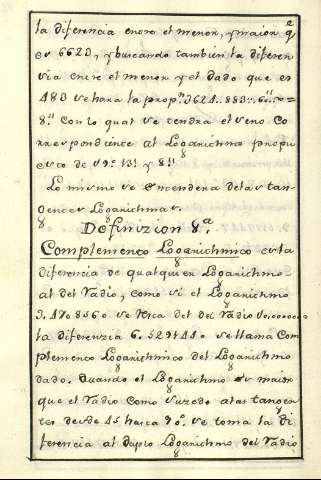 la diferencia entre el menor, y maior q̃
es 6623, y buscando tambien la diferen-
sia entre el menor y el dado que es
483 se hara la prop.n 3624..883::60"..=
8." con lo qual se tendra el seno Co
rrespondiente al Logarithmo propu
esto de 19° 13' y 8."
Lo mismo se entendera de las tan-
gentes Logarithmas.
Definizion 8.a
Complemento Logarithmico es la
diferencia de qualquier Logarithmo
al del Radio, como si el Logarithmo
3. 470856 se resta del del Radio 10.000000
la diferenzia 6. 529144 se llama Com
plemento Logarithmico del Logarithmo
dado. Quando el Logarithmo es maior
que el Radio como suzede a las tangen
tes desde 45 hasta 90° se toma la di
ferencia al duplo Logarithmo del Radio